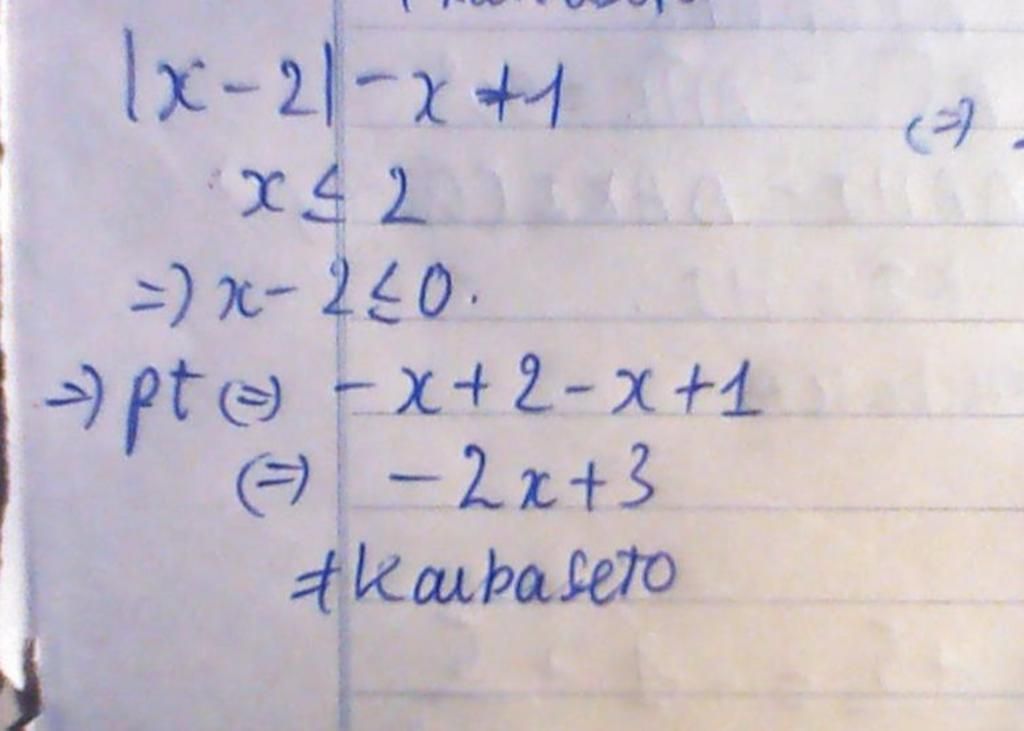 |x-2|-x+1
(=)
x ≤ 2
=) x-2 ≤ 0.
=) pt (=) -x+2-x+1
(=) -2x+3
#Kaibaseto